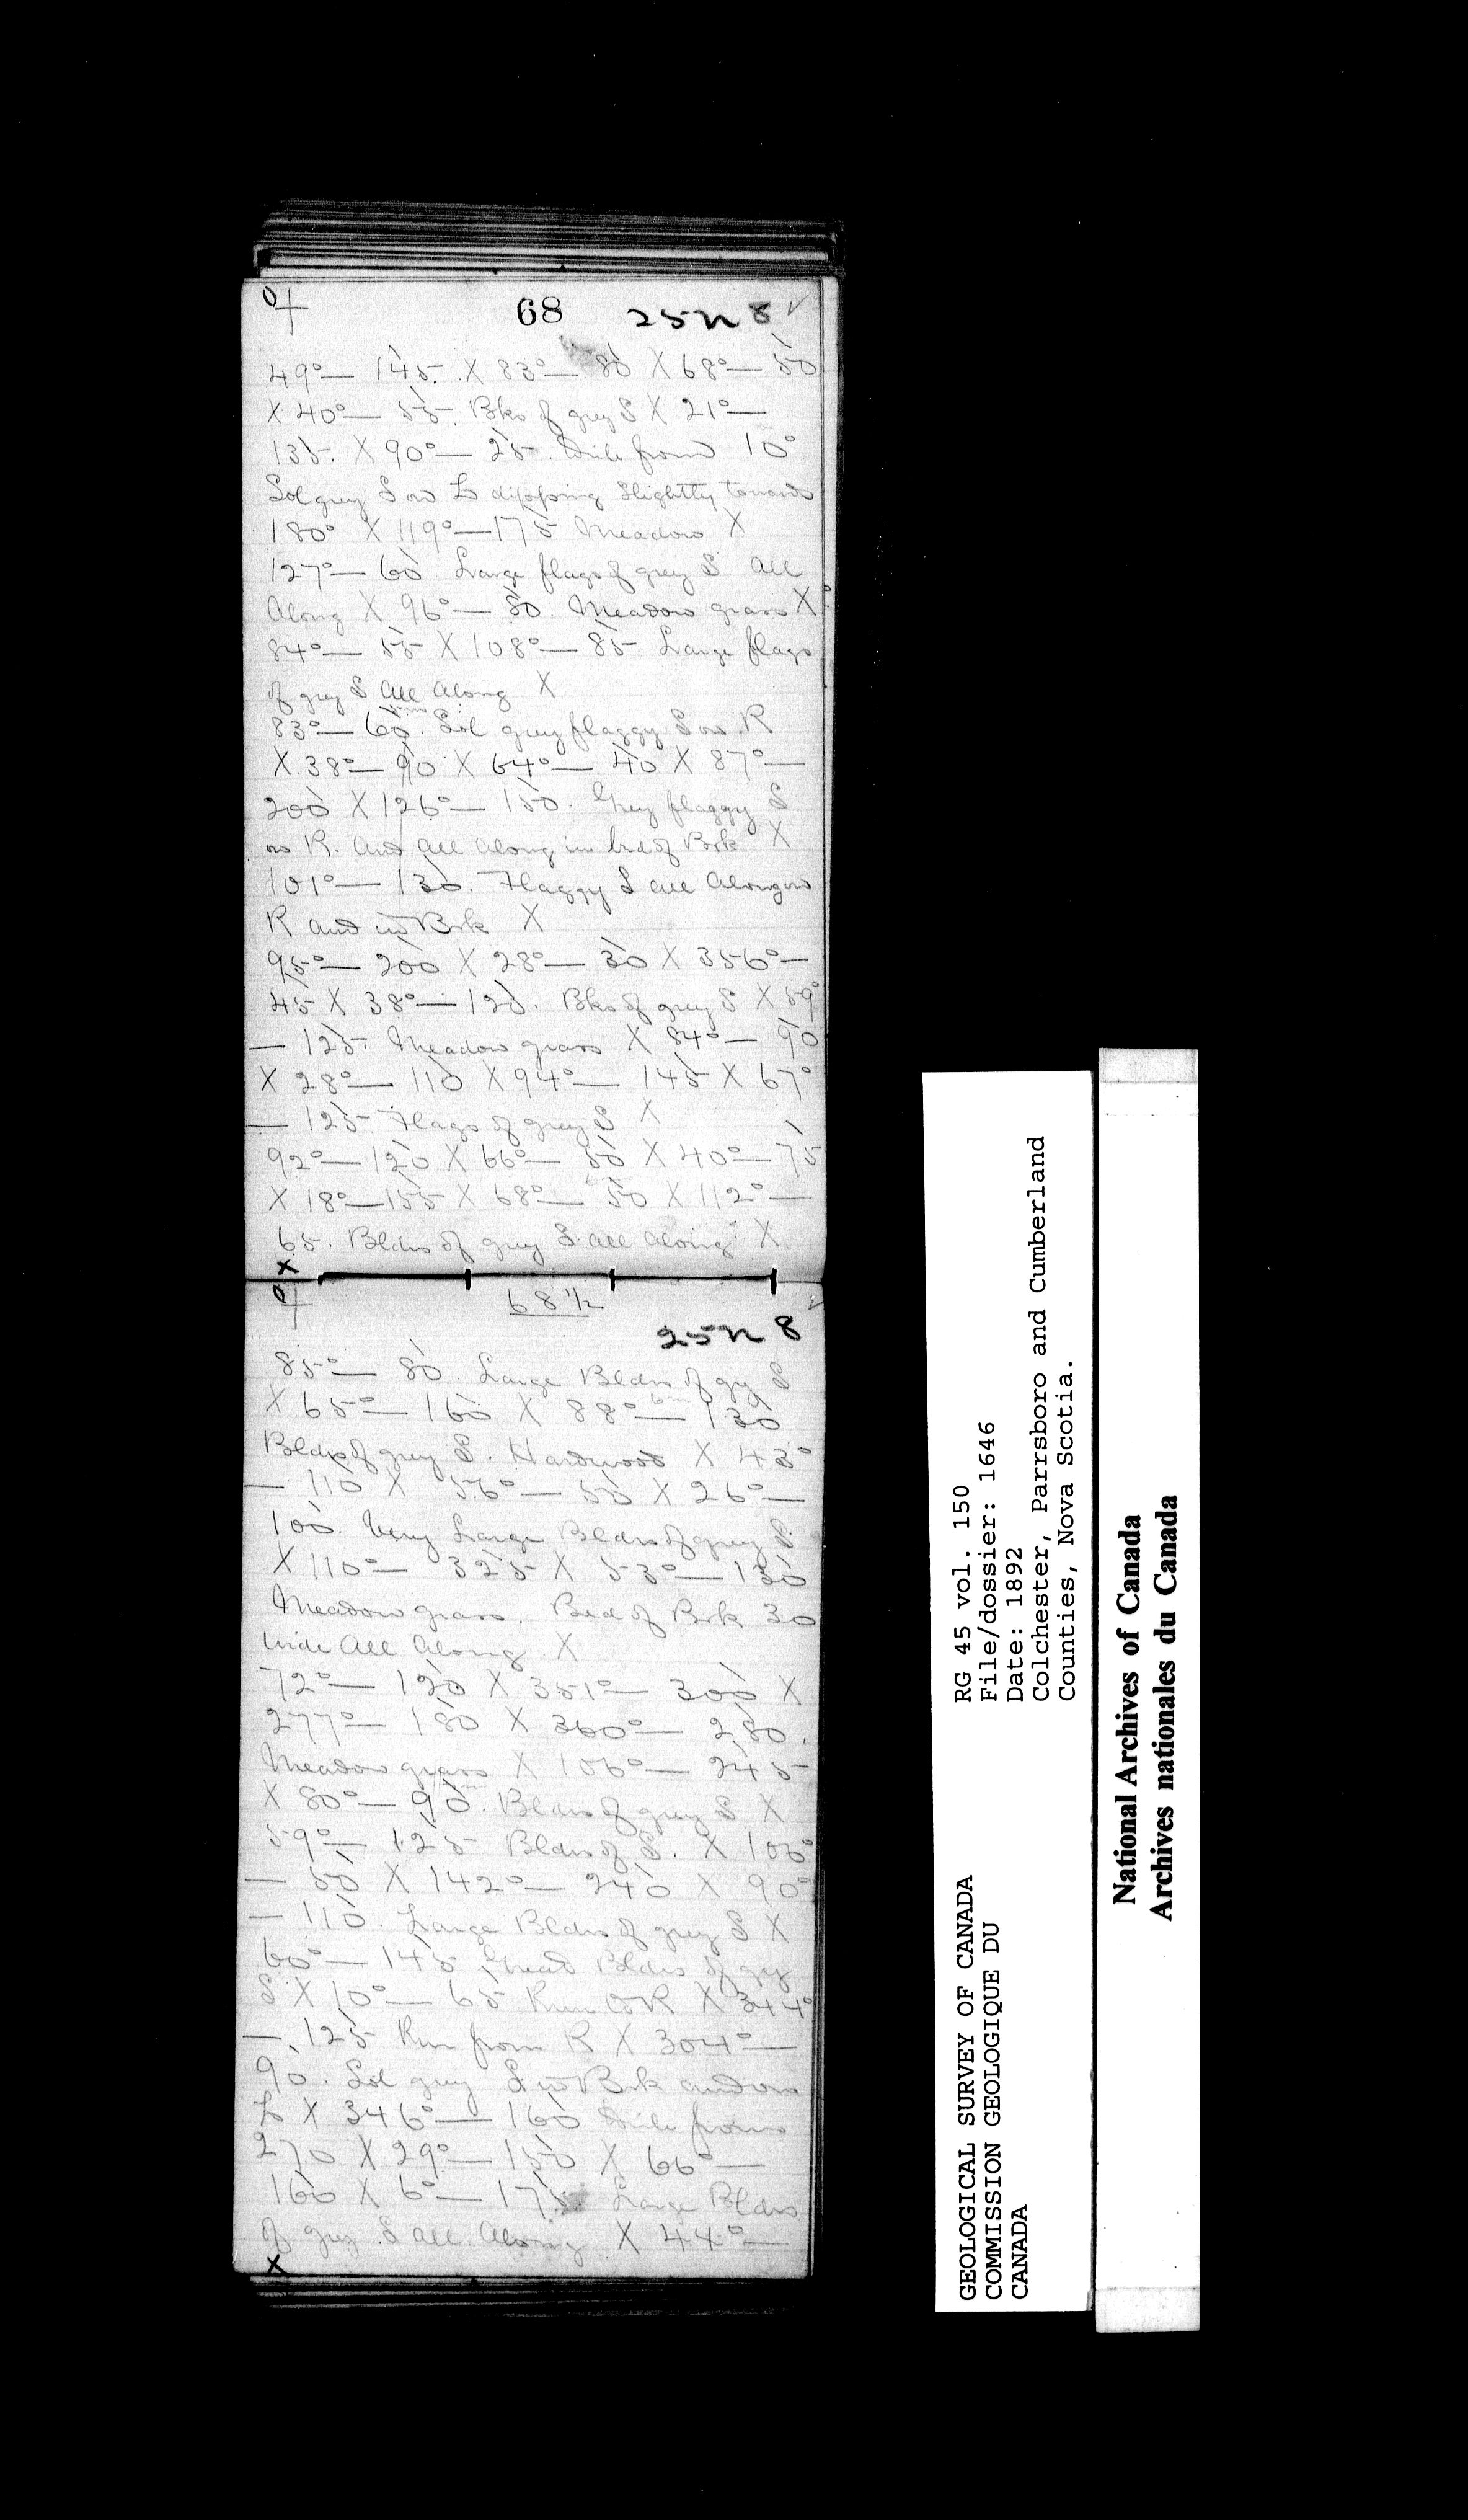 68 25N8
49°— 145. X 83°— 80 X 68°— 50
X 40°— 55. Bks of grey S X 21°—
135. X 90°— 25. from 10°
Sol grey S on L dipping slightly towards
180° X 119°—175 Meadow X
127°— 60 Large flags of grey S All
Along X 96°— 80. Meadow grass X
84°— 55 X 108°— 85 Large flags
of grey S All Along X
83°— 60. Sol grey flaggy S on R
X 38°— 90 X 64°— 40 X 87°—
200 X 126°— 150. Grey flaggy S
on R. and All Along in bed of Brk X
101°— 130. Flaggy S All Along on
R and in Brk X
95°— 200 X 28°— 30 X 356°—
45 X 38°— 125. Bks of grey S X 59°
— 125. Meadow grass X 84°— 90
X 28°— 110 X 94°— 145 X 67°
— 125 Flags of grey S X
92°— 120 X 66°— 50 X 40°— 75
X 18°—155 X 68°— 50 X 112°—
65. Bldrs of grey S All Along X
X
68 1/2
25N8
85°— 80. Large Bldrs of gry S
X 65°— 160 X 88°— 130
Bldrs of grey S. Hardwood X 43°
— 110 X 56°— 50 X 26°—
100. Very Large Bldrs of grey S.
X 110°— 325 X 53°— 150
Meadow grass. Bed of Brk 30
wide All Along X
72°— 120 X 351°— 300 X
277°— 180 X 360°— 280.
Meadow grass X 106°— 245
X 80°— 90. Bldrs of grey S X
59°— 125 Bldrs of S. X 106°
— 50 X 142°— 240 X 90°
— 110. Large Bldrs of grey S X
60°— 145 Bldrs of gry
S X 10°— 65 Run to R X 344°
— 125 Run from R X 304°—
90. Sol grey S in Brk and on
L X 346°— 160 from
270 X 29°— 150 X 66°—
160 X 6°— 175. Large Bldrs
of grey S All Along X 44°—
X
GEOLOGICAL SURVEY OF CANADA
COMMISSION GEOLOGIQUE DU
CANADA
RG 45 vol. 150
File/dossier: 1646
Date: 1892
Colchester, Parrsboro and Cumberland
Counties, Nova Scotia.
National Archives of Canada
Archives nationales du Canada